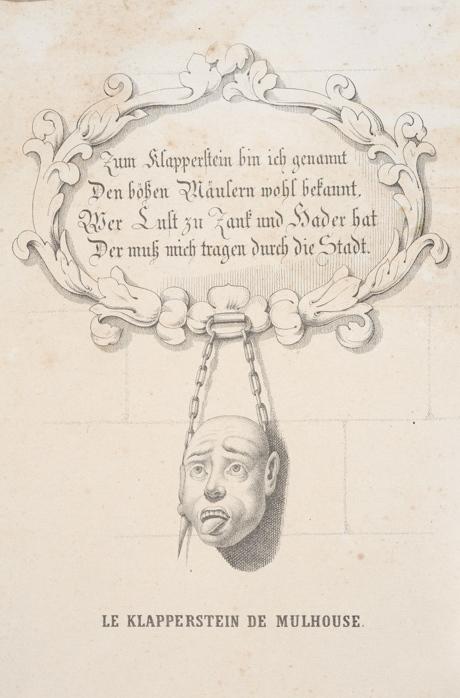 Zum Klapperstein bin ich genannt
Den bößen Mäulern wohl bekannt,
Wer Lust zu Zank und Hader hat
Der muß mich tragen durch die Stadt.
LE KLAPPERSTEIN DE MULHOUSE.